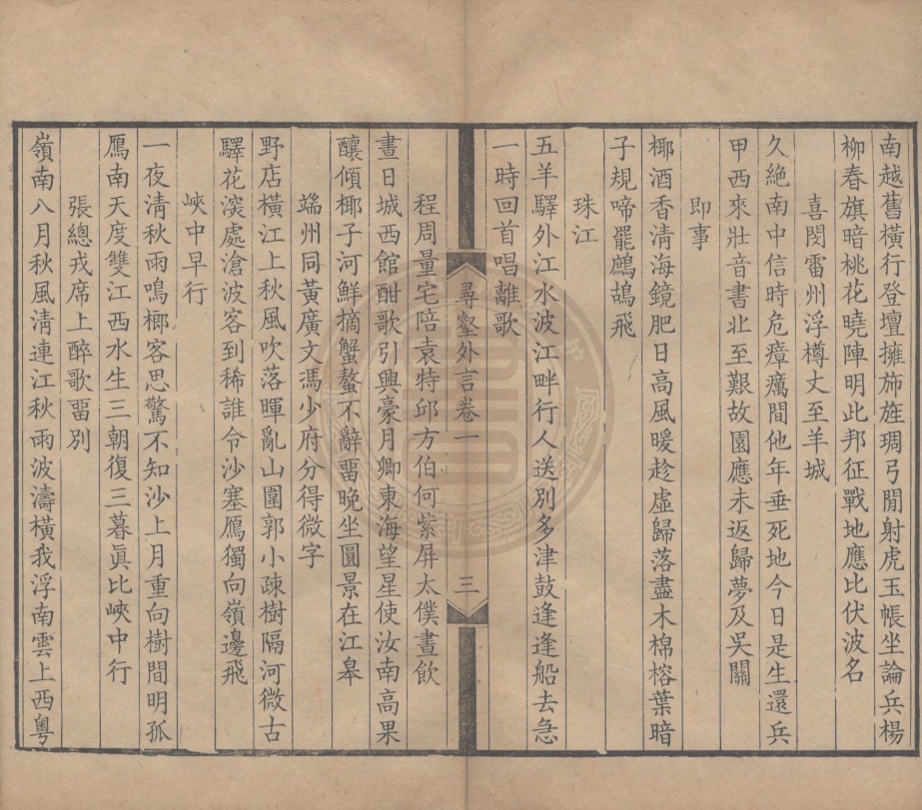 南越舊橫行登壇擁斾旌琱弓閒射虎玉帳坐論兵楊
柳春旗暗桃花曉陣明此邦征戰地應比伏波名
喜閔雷州浮樽丈至羊城
久絶南中信時危瘴癘間他年垂死地今日是生還兵
甲西來壯音書北至艱故園應未返歸夢及吳關
即事
椰酒香清海鏡肥日高風暖趁虛歸落盡木棉榕葉暗
子規啼罷鷓鴣飛
珠江
五羊驛外江水波江畔行人送別多津鼓逢逢船去急
一時回首唱離歌
尋壑外言卷一
三
程周量宅陪袁特邱方伯何紫屏太僕晝飲
晝日城西館酣歌引興豪月卿東海望星使汝南高果
釀傾椰子河鮮摘蟹螯不辭畱晚坐圓景在江皋
端州同黃廣文馮少府分得微字
野店橫江上秋風吹落暉亂山圍郭小疎樹隔河微古
驛花深處滄波客到稀誰令沙塞鴈獨向嶺邊飛
峽中早行
一夜清秋雨鳴榔客思驚不知沙上月重向樹間明孤
鴈南天度雙江西水生三朝復三暮眞比峽中行
張總戎席上醉歌畱別
嶺南八月秋風清連江秋雨波濤橫我浮南雲上西粵